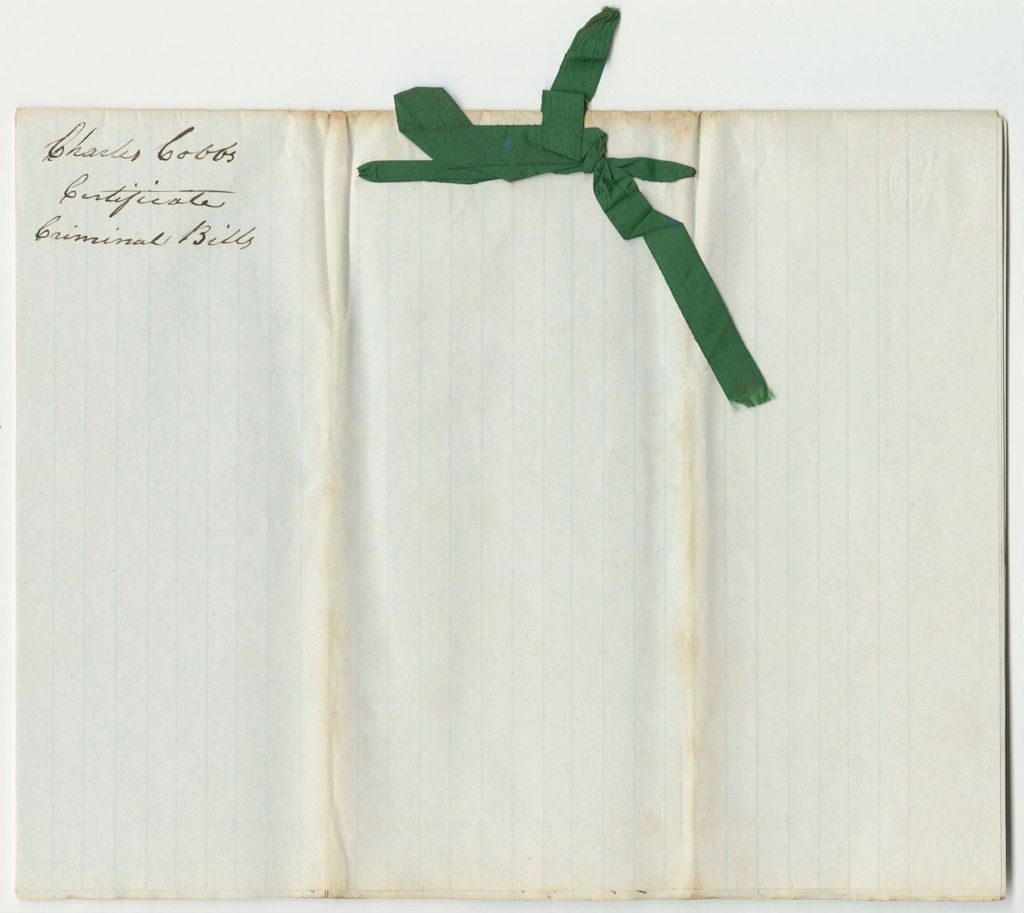 Charles Cobbs
Certificate
Criminal Bills